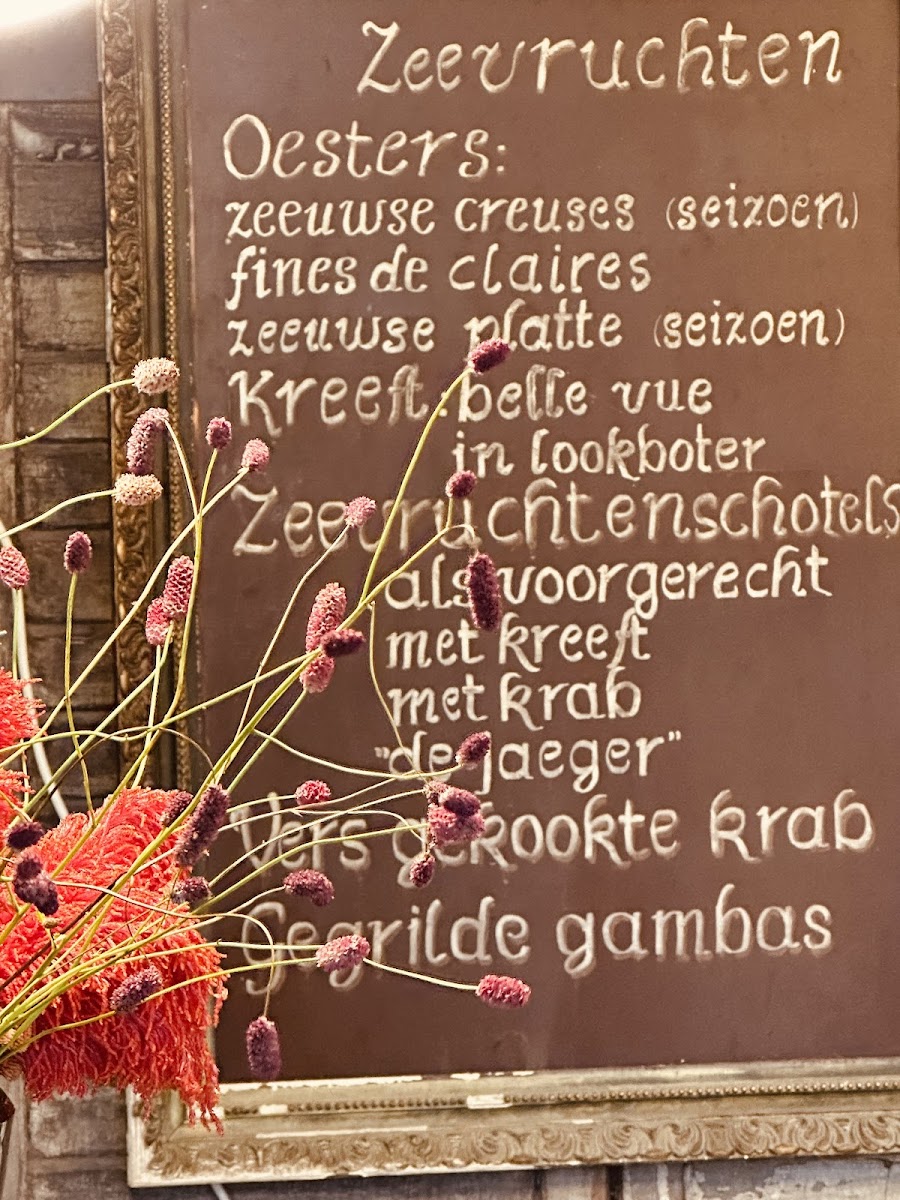 Zeevruchten
Oesters:
zeeuwse creuses (seizoen)
fines de claires
zeeuwse platte (seizoen)
Kreeft: belle vue
in lookboter
Zeevruchtenschotels
als voorgerecht
met kreeft
met krab
"de jaeger"
Vers gekookte krab
Gegrilde gambas